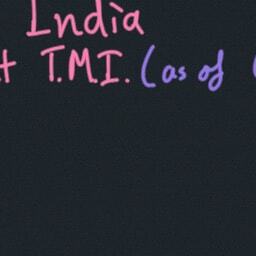 India
T.M.I. (as of